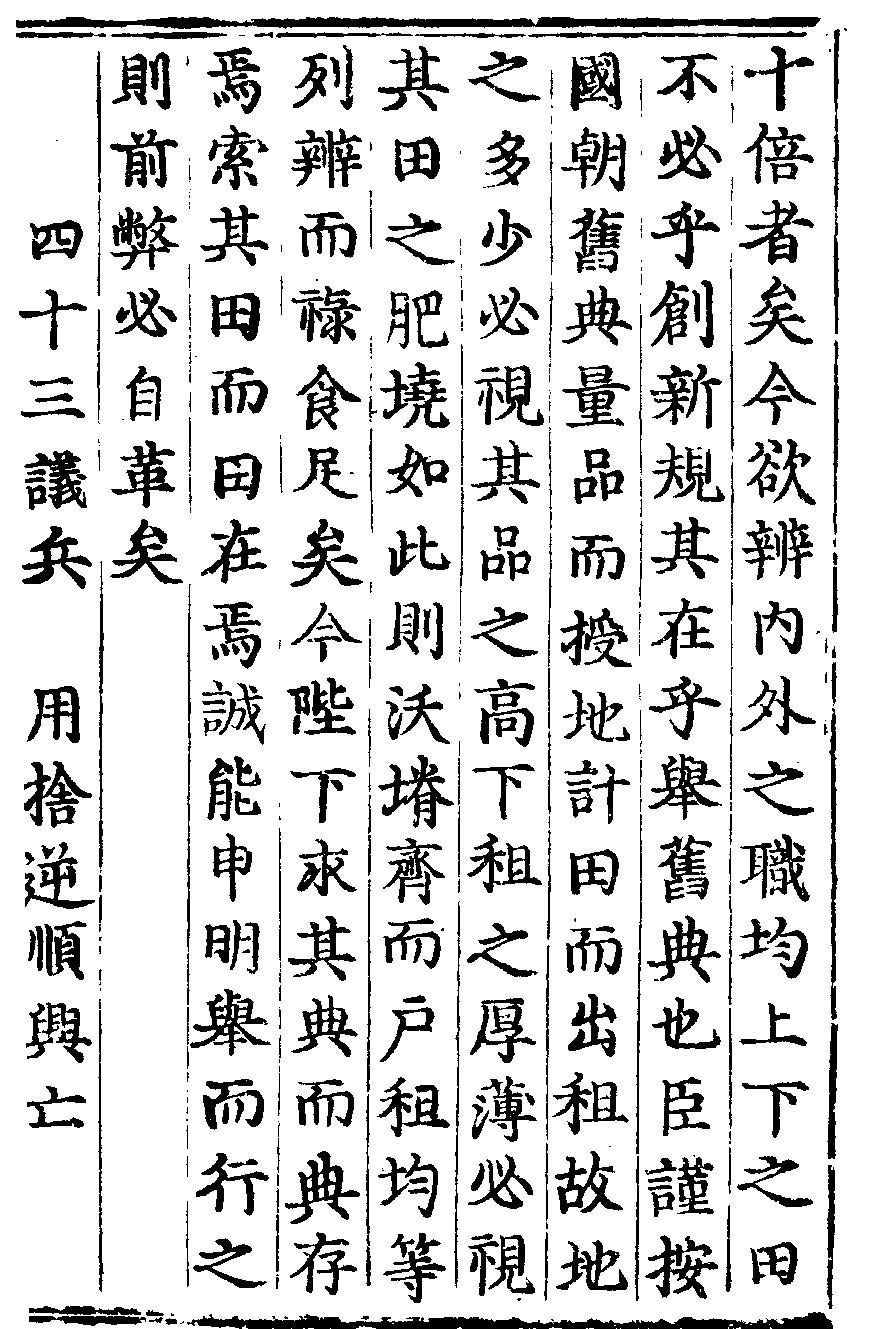 十倍者矣今欲辨内外之職均上下之田
不必乎創新規其在乎舉舊典也臣謹按
國朝舊典量品而授地計田而出租故地
之多少必視其品之高下租之厚薄必視
其田之肥墝如此則沃塉齊而戸租均等
列辨而祿食足矣今陛下求其典而典存
焉索其田而田在焉誠能申明舉而行之
則前弊必自革矣
四十三議兵　用捨逆順興亡